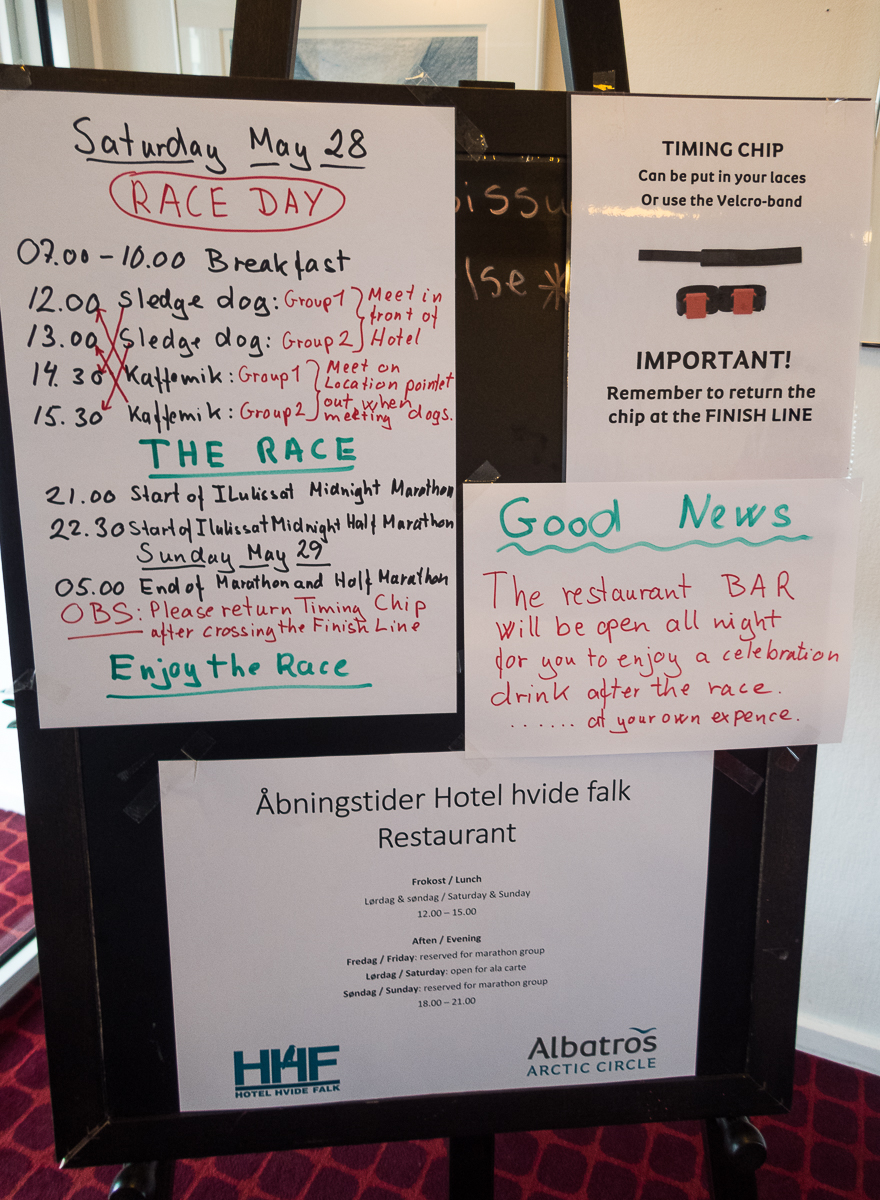 Saturday May 28
RACE DAY
07.00 - 10.00 Breakfast
12.00 Sledge dog: Group 1 } Meet in
front of
13.00 Sledge dog: Group 2 } Hotel
14.30 Kaffemik: Group 1 } Meet on
Location pointet
out when
15.30 Kaffemik: Group 2 } meeting dogs.
THE RACE
21.00 Start of ILulissat Midnight Marathon
22.30 Start of Ilulissat Midnight Half Marathon
Sunday May 29
05.00 End of Marathon and Half Marathon
OBS: Please return Timing Chip
after crossing the Finish Line
Enjoy the Race
TIMING CHIP
Can be put in your laces
Or use the Velcro-band
IMPORTANT!
Remember to return the
chip at the FINISH LINE
Good News
The restaurant BAR
will be open all night
for you to enjoy a celebration
drink after the race.
...... at your own expence.
Åbningstider Hotel hvide falk
Restaurant
Frokost / Lunch
Lørdag & søndag / Saturday & Sunday
12.00 – 15.00
Aften / Evening
Fredag / Friday: reserved for marathon group
Lørdag / Saturday: open for ala carte
Søndag / Sunday: reserved for marathon group
18.00 – 21.00
HHF
HOTEL HVIDE FALK
Albatros
ARCTIC CIRCLE